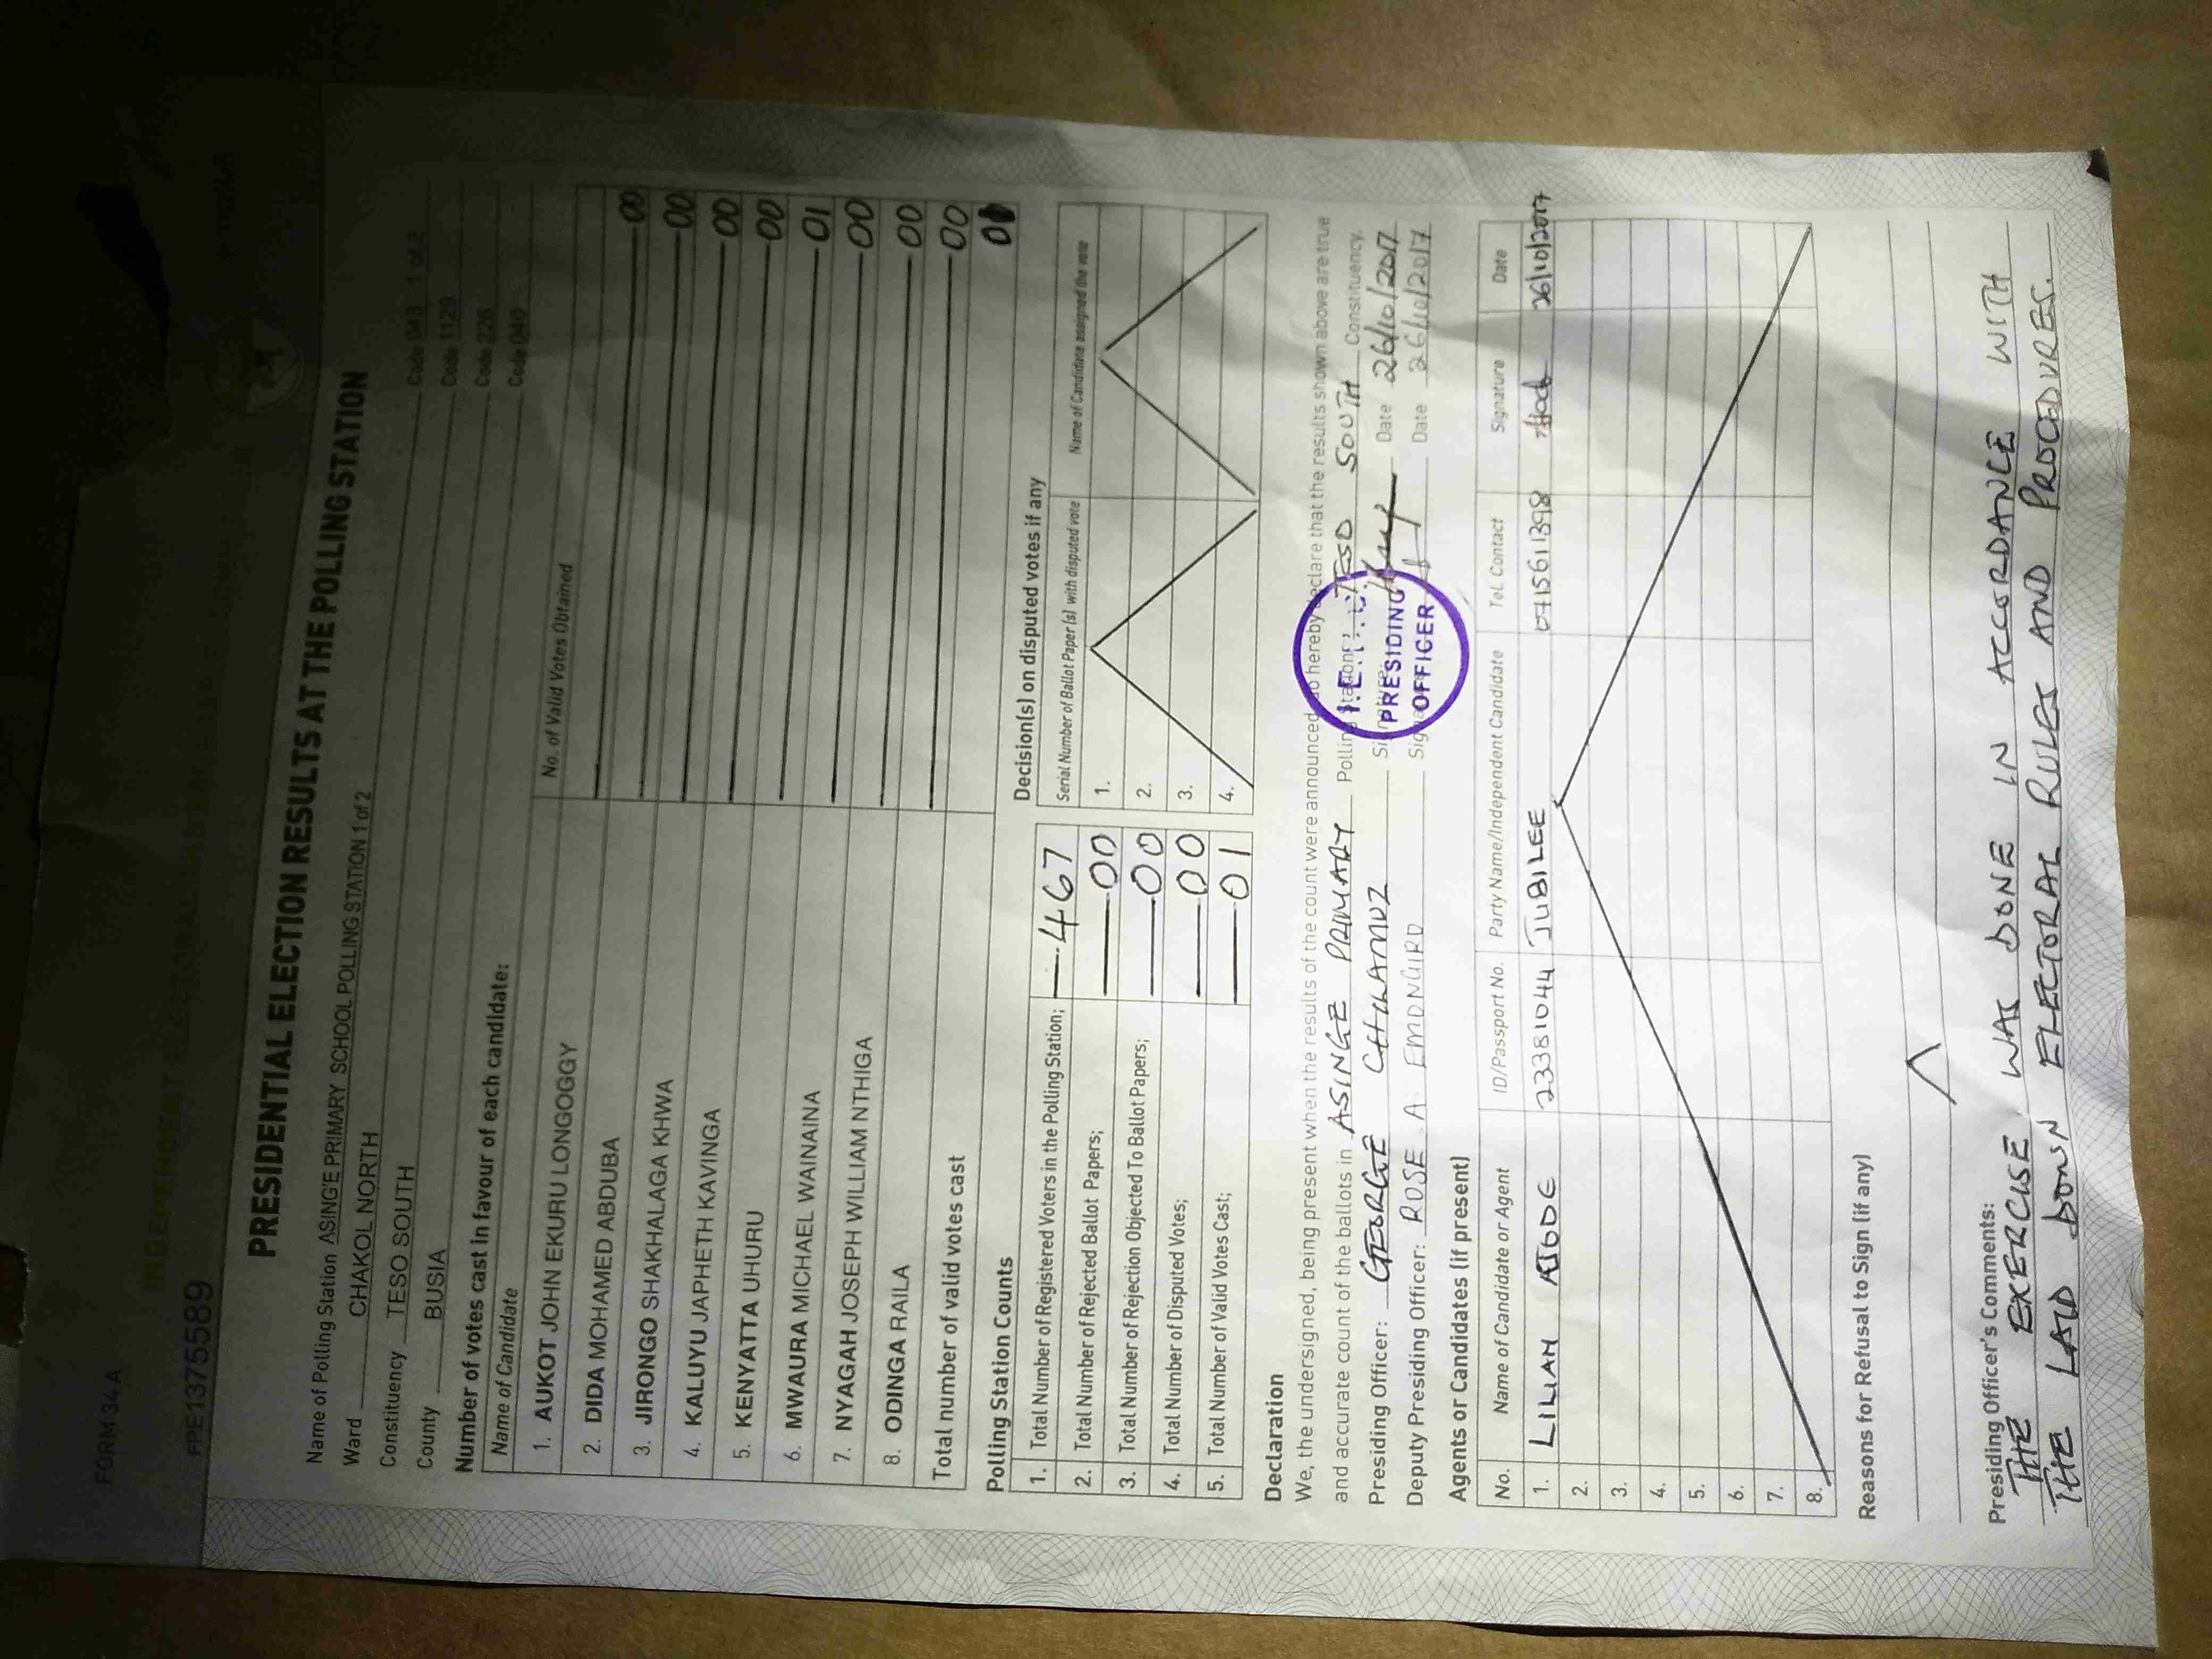 FORM 34 A
FPE1375589
PRESIDENTIAL ELECTION RESULTS AT THE POLLING STATION
Name of Polling Station ASING'E PRIMARY SCHOOL POLLING STATION 1 of 2 Code 043 1 of 2
Ward CHAKOL NORTH Code 1129
Constituency TESO SOUTH Code 226
County BUSIA Code 040
Number of votes cast in favour of each candidate:
Name of Candidate No. of Valid Votes Obtained
1. AUKOT JOHN EKURU LONGOGGY 00
2. DIDA MOHAMED ABDUBA 00
3. JIRONGO SHAKHALAGA KHWA 00
4. KALUYU JAPHETH KAVINGA 00
5. KENYATTA UHURU 01
6. MWAURA MICHAEL WAINAINA 00
7. NYAGAH JOSEPH WILLIAM NTHIGA 00
8. ODINGA RAILA 00
Total number of valid votes cast 01
Polling Station Counts
1. Total Number of Registered Voters in the Polling Station; 467
2. Total Number of Rejected Ballot Papers; 00
3. Total Number of Rejection Objected To Ballot Papers; 00
4. Total Number of Disputed Votes; 00
5. Total Number of Valid Votes Cast; 01
Decision(s) on disputed votes if any
Serial Number of Ballot Paper (s) with disputed vote Name of Candidate assigned the vote
1.
2.
3.
4.
Declaration
We, the undersigned, being present when the results of the count were announced, do hereby declare that the results shown above are true
and accurate count of the ballots in ASINGE PRIMARY Polling Station, TESO SOUTH Constituency.
Presiding Officer: GEORGE Signature Date 26/10/2017
Deputy Presiding Officer: ROSE A EMONGIRO Signature Date 26/10/2017
PRESIDING
OFFICER
Agents or Candidates (if present)
No. Name of Candidate or Agent ID/Passport No. Party Name/Independent Candidate Tel. Contact Signature Date
1. LILIAN 23381044 JUBILEE 0715611398 26/10/2017
2.
3.
4.
5.
6.
7.
8.
Reasons for Refusal to Sign (if any)
Presiding Officer's Comments:
THE EXERCISE WAS DONE IN ACCORDANCE WITH
THE LAID DOWN ELECTORAL RULES AND PROCEDURES.